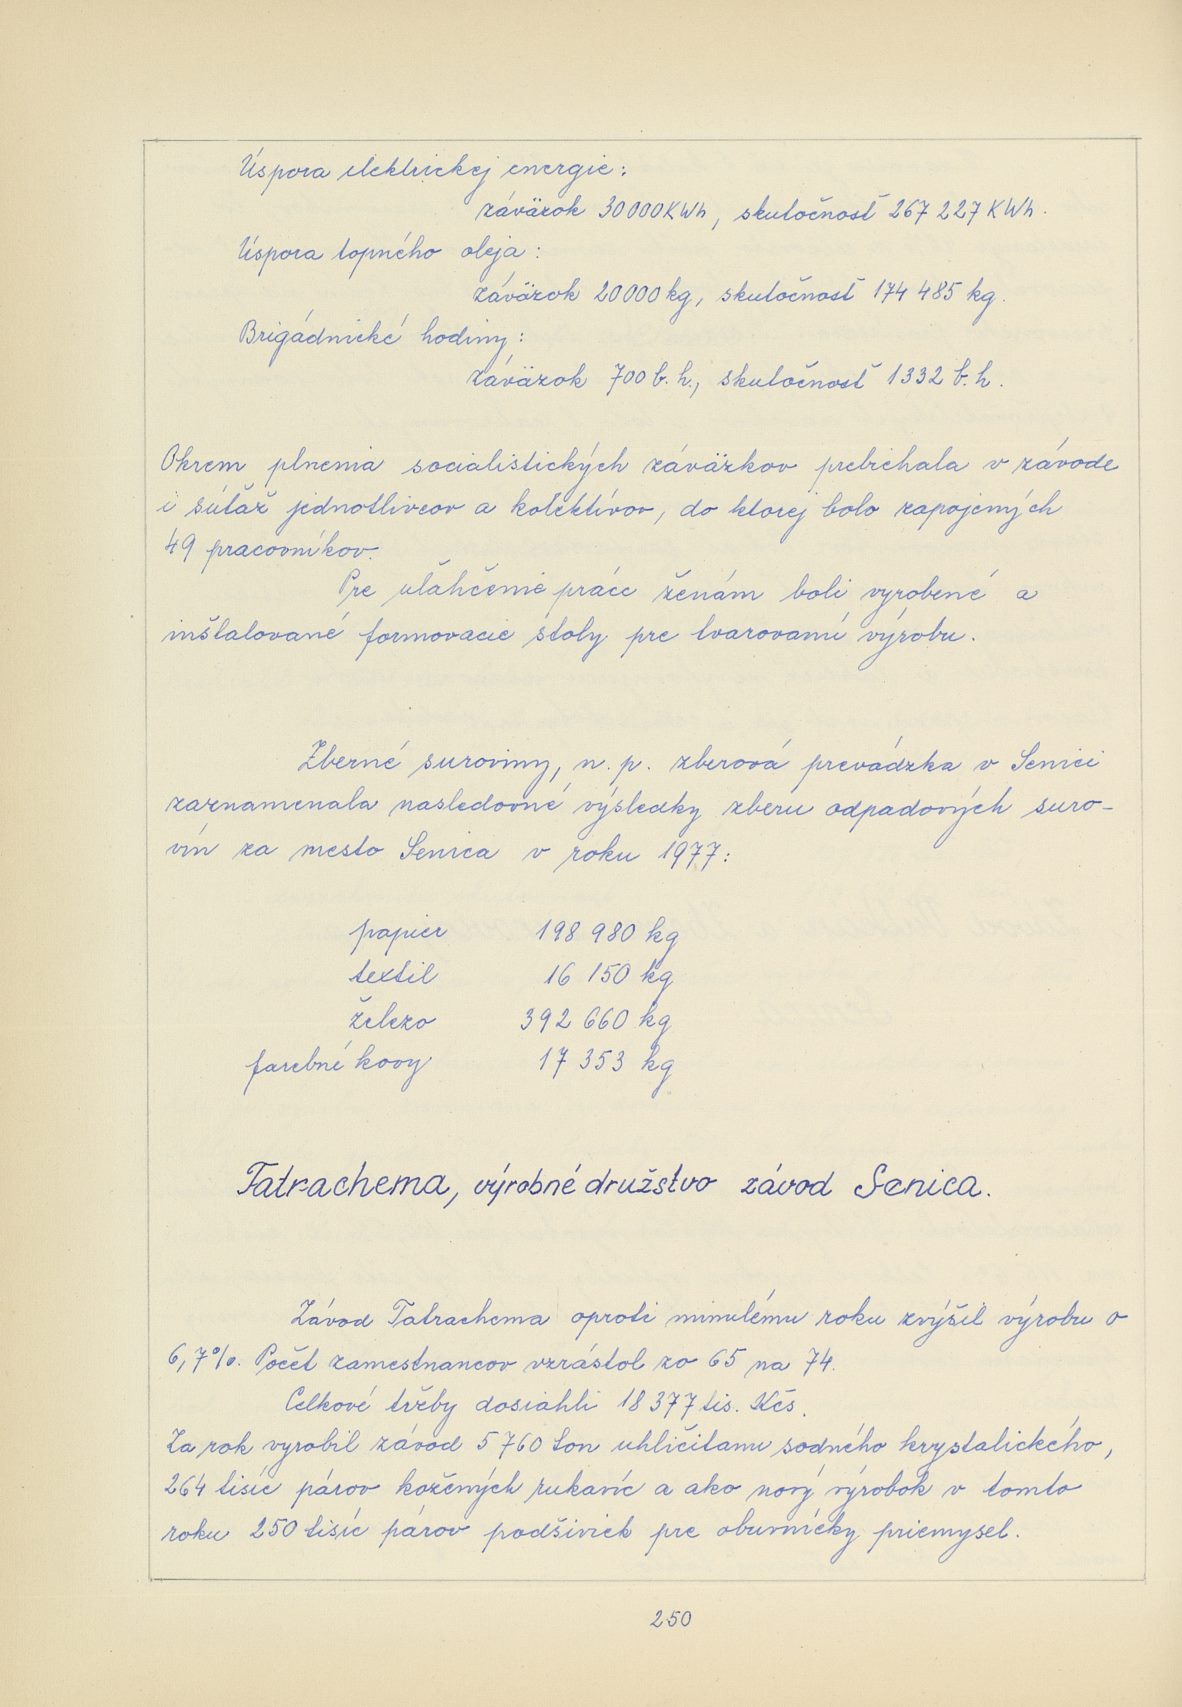 Úspora elektrickej energie:
záväzok 30000KWh, skutočnosť 267 227 KWh.
Úspora topného oleja:
záväzok 20000kg, skutočnosť 174 485 kg.
Brigádnické hodiny:
záväzok 700 b.h., skutočnosť 1332 b.h.
Okrem plnenia socialistických záväzkov prebiehala v závode
i súťaž jednotlivcov a kolektívov, do ktorej bolo zapojených
49 pracovníkov.
Pre uľahčenie práce ženám boli vyrobené a
inštalované formovacie stoly pre tvarovanú výrobu.
Zberné suroviny, n. p. zberová prevádzka v Senici
zaznamenala nasledovné výsledky zberu odpadových suro-
vín za mesto Senica v roku 1977:
papier 198 980 kg
textil 16 150 kg
železo 392 660 kg
farebné kovy 17 353 kg
Tatrachema, výrobné družstvo závod Senica.
Závod Tatrachema oproti minulému roku zvýšil výrobu o
6,7%. Počet zamestnancov vzrástol zo 65 na 74.
Celkové tržby dosiahli 18 377 tis. Kčs.
Za rok vyrobil závod 5 760 ton uhličitanu sodného krystalického,
264 tisíc párov kožených rukavíc a ako nový výrobok v tomto
roku 250 tisíc párov podšiviek pre obuvnícky priemysel.
250